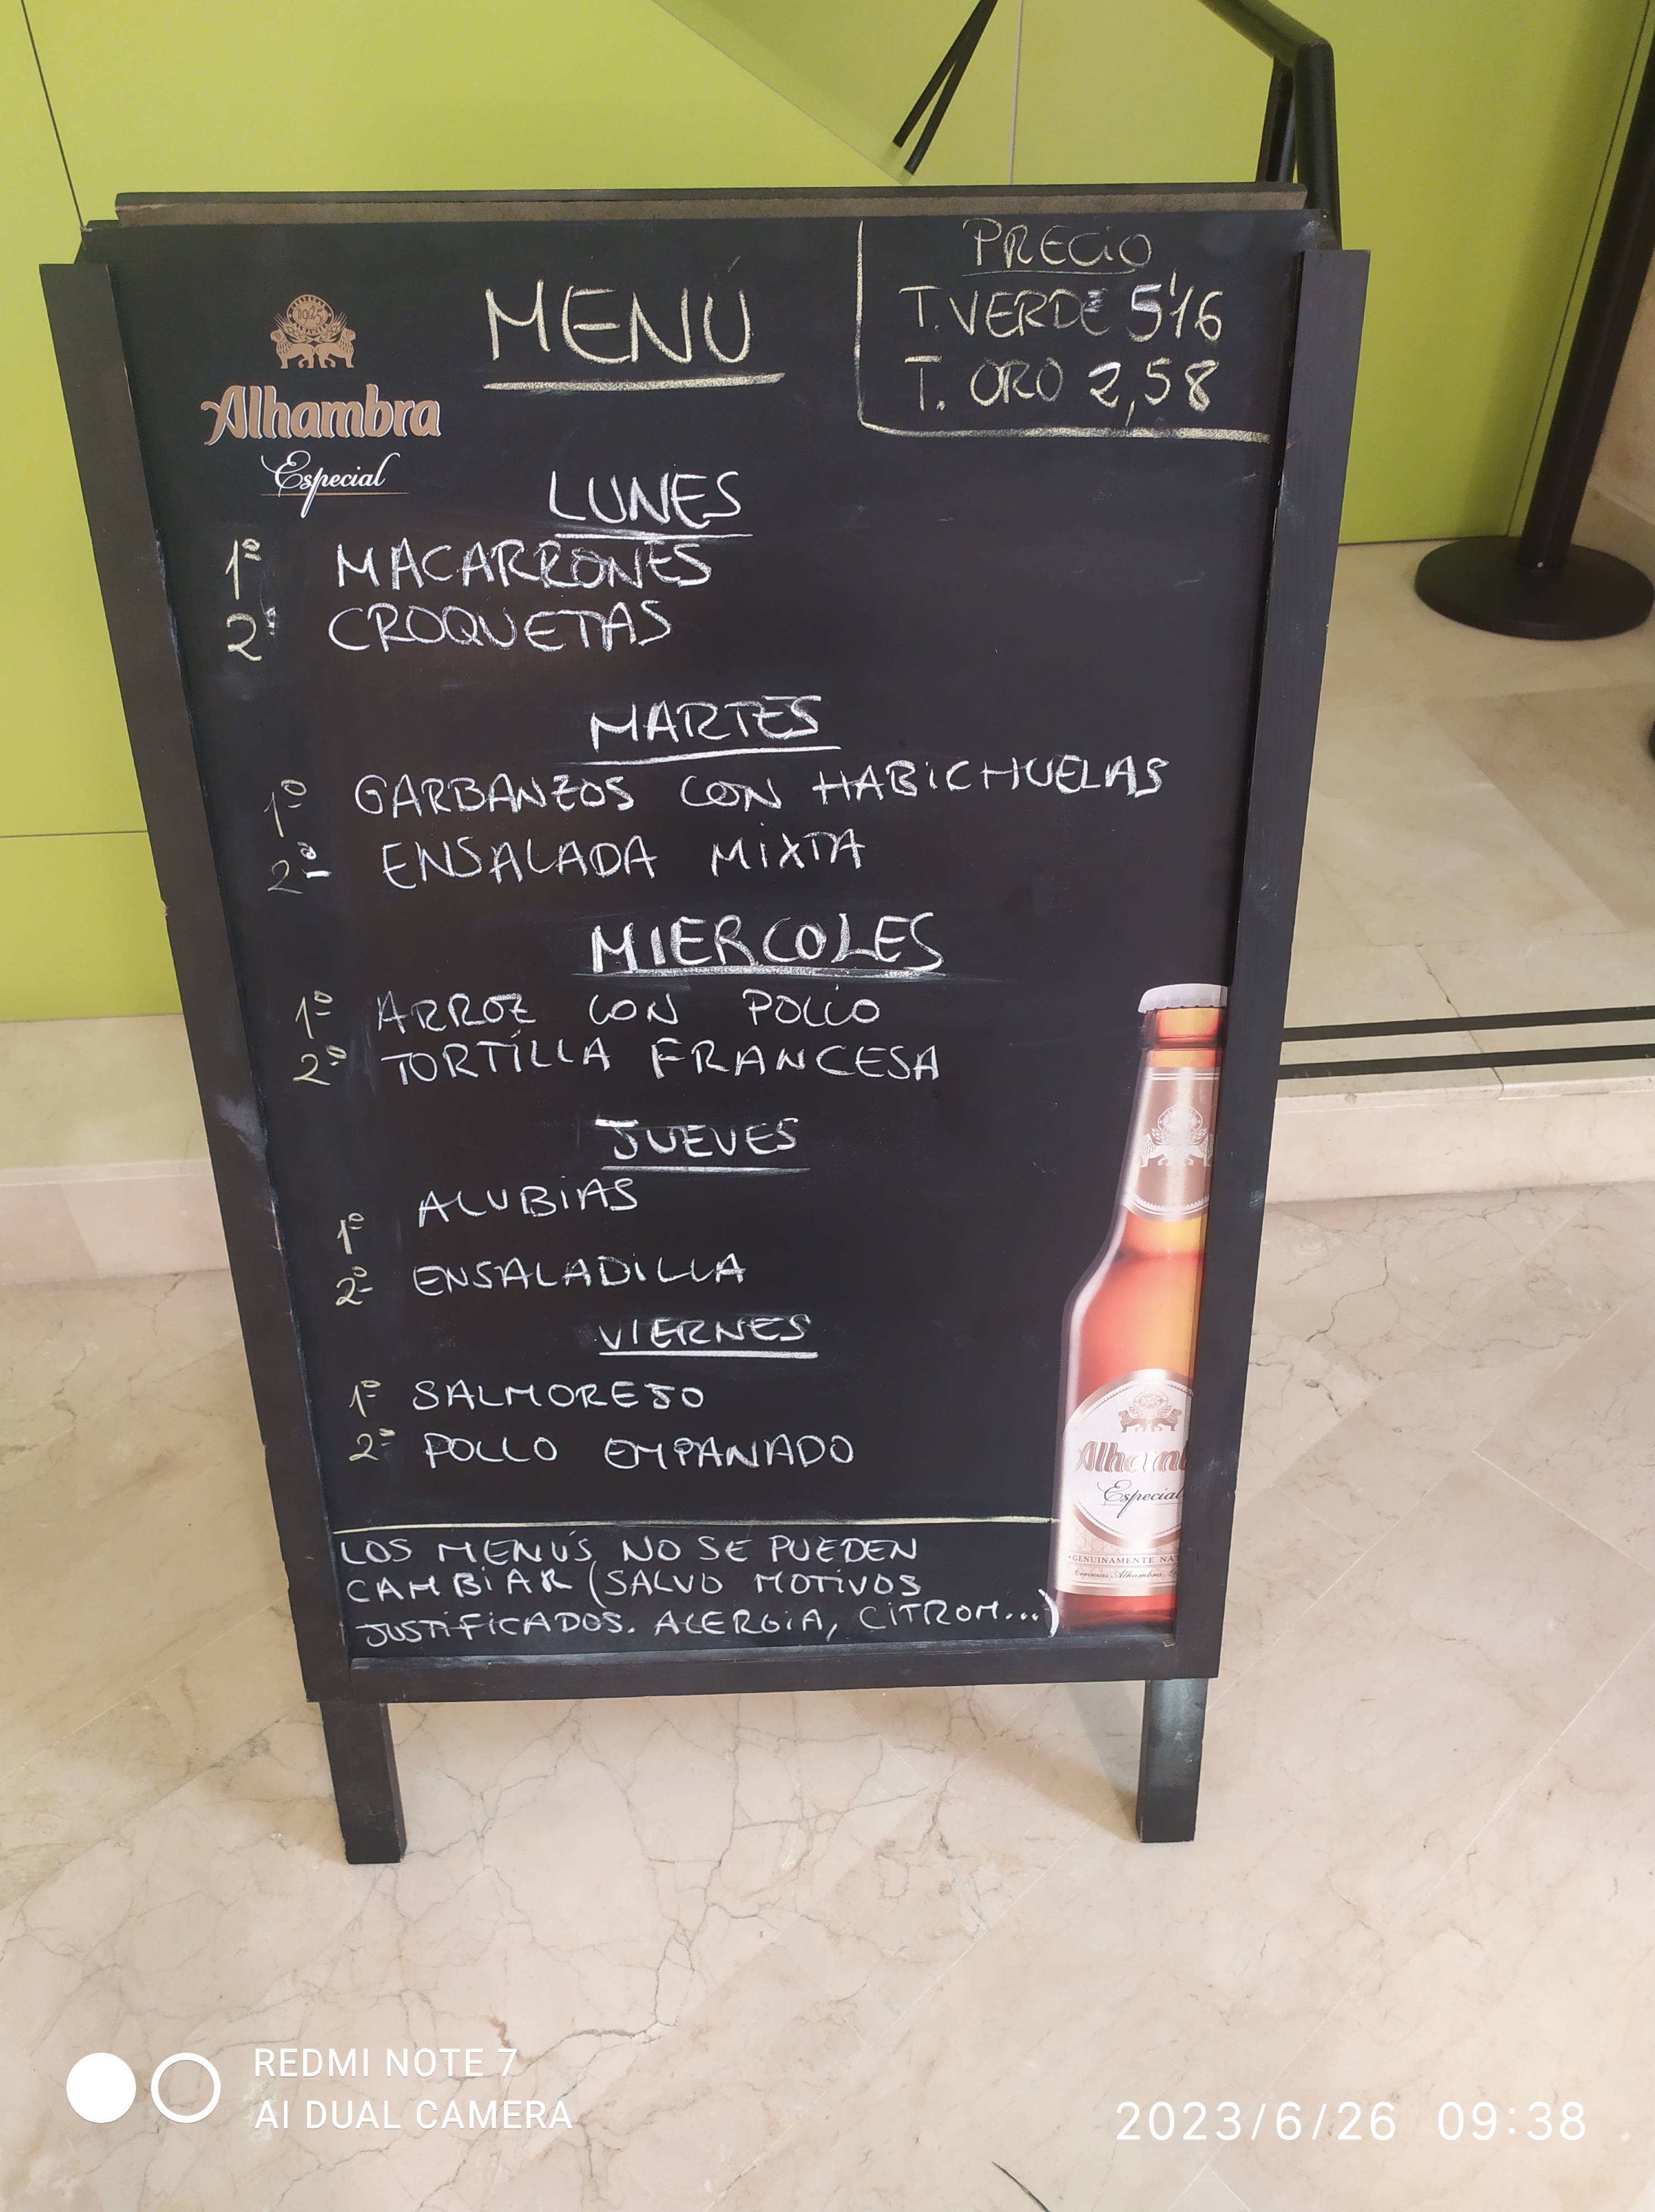 MENÚ
PRECIO
T. VERDE 5'16
T. ORO 2,58
1925
Alhambra
Especial
LUNES
1º MACARRONES
2º CROQUETAS
MARTES
1º GARBANZOS CON HABICHUELAS
2º ENSALADA MIXTA
MIERCOLES
1º ARROZ CON POLLO
2º TORTILLA FRANCESA
JUEVES
1º ALUBIAS
2º ENSALADILLA
VIERNES
1º SALMOREJO
2º POLLO EMPANADO
LOS MENÚS NO SE PUEDEN
CAMBIAR (SALVO MOTIVOS
JUSTIFICADOS. ALERGIA, CITROM...)
Alhamb
Especial
GENUINAMENTE NAT
Cervezas Alhambra,
REDMI NOTE 7
AI DUAL CAMERA
2023/6/26 09:38